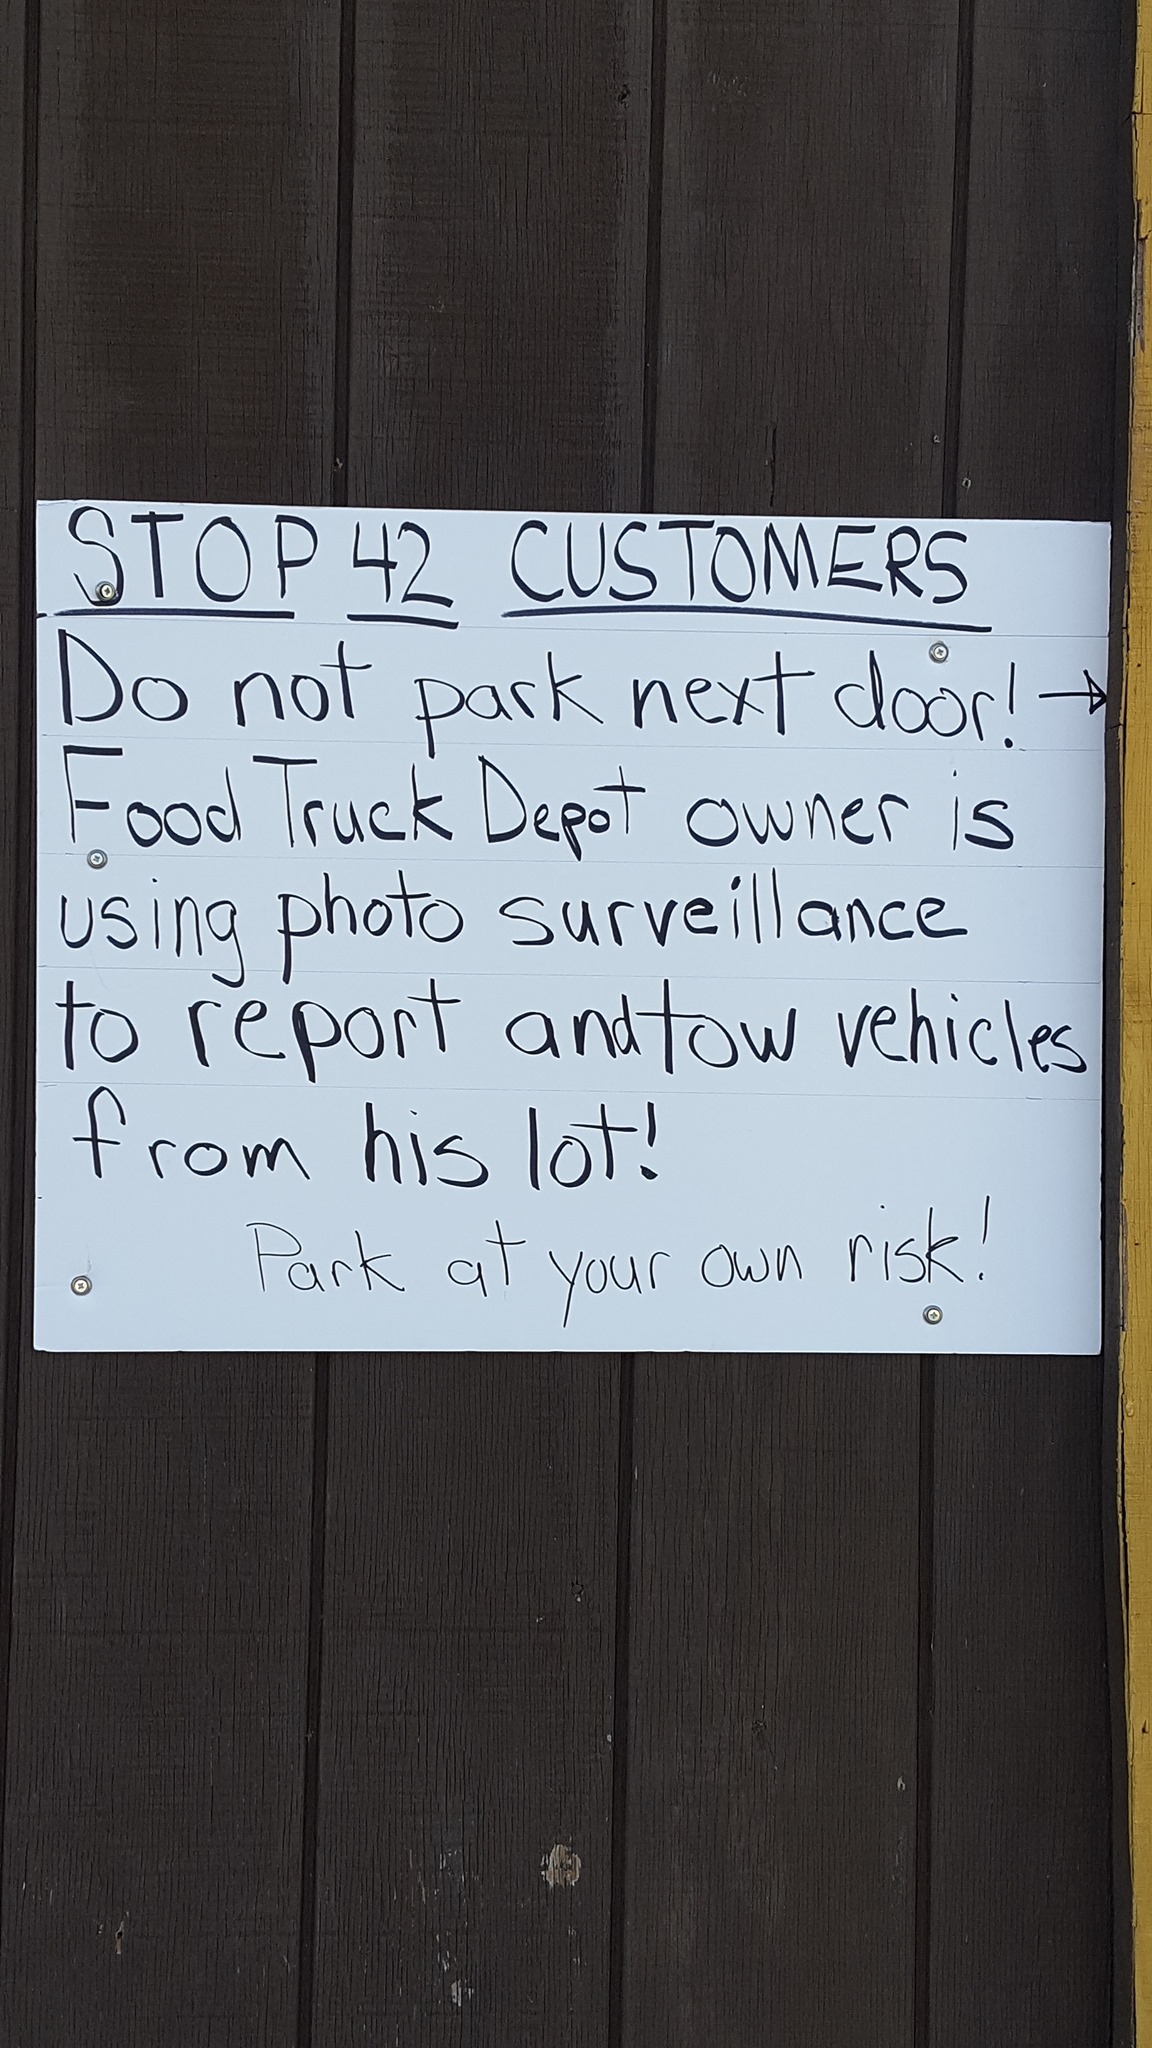 STOP 42 CUSTOMERS
Do not park next door! →
Food Truck Depot owner is
using photo surveillance
to report and tow vehicles
from his lot!
Park at your own risk!